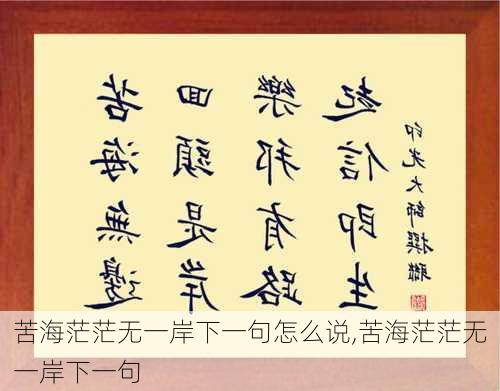 苦海無邊
回頭是岸
樂邦有路
起信即生
印光大師撰聯
苦海茫茫无一岸下一句怎么说,苦海茫茫无
一岸下一句